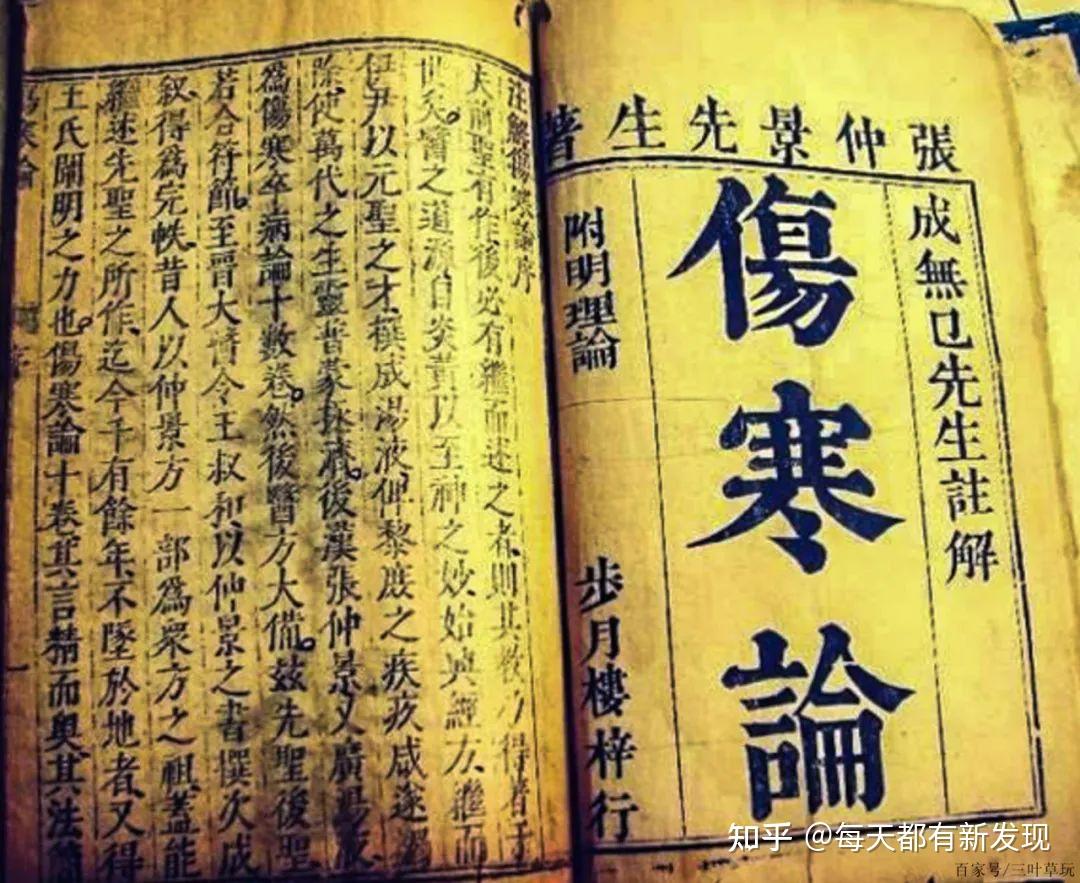 張仲景先生著
成無已先生註解
傷寒論
附明理論
步月樓梓行
注解傷寒論序
夫前聖有作後必有繼而述之者則其教乃得著于
世矣。醫之道源自炎黃以至神之妙始興經方、繼而
伊尹以元聖之才、撰成湯液、俾黎庶之疾疚咸遂蠲
除、使萬代之生靈普蒙拯濟。後漢張仲景又廣湯液
為傷寒卒病論十數卷。然後醫方大備。茲先聖後聖
若合符節。至晉大醫令王叔和、以仲景之書撰次成
敘、得為完帙、昔人以仲景方一部為衆方之祖、蓋能
繼述先聖之所作、迄今千有餘年、不墜於地者、又得
王氏闡明之力也。傷寒論十卷、其言精而奧、其法簡
傷寒論
一
知乎 @每天都有新发现
百家号/三叶草玩